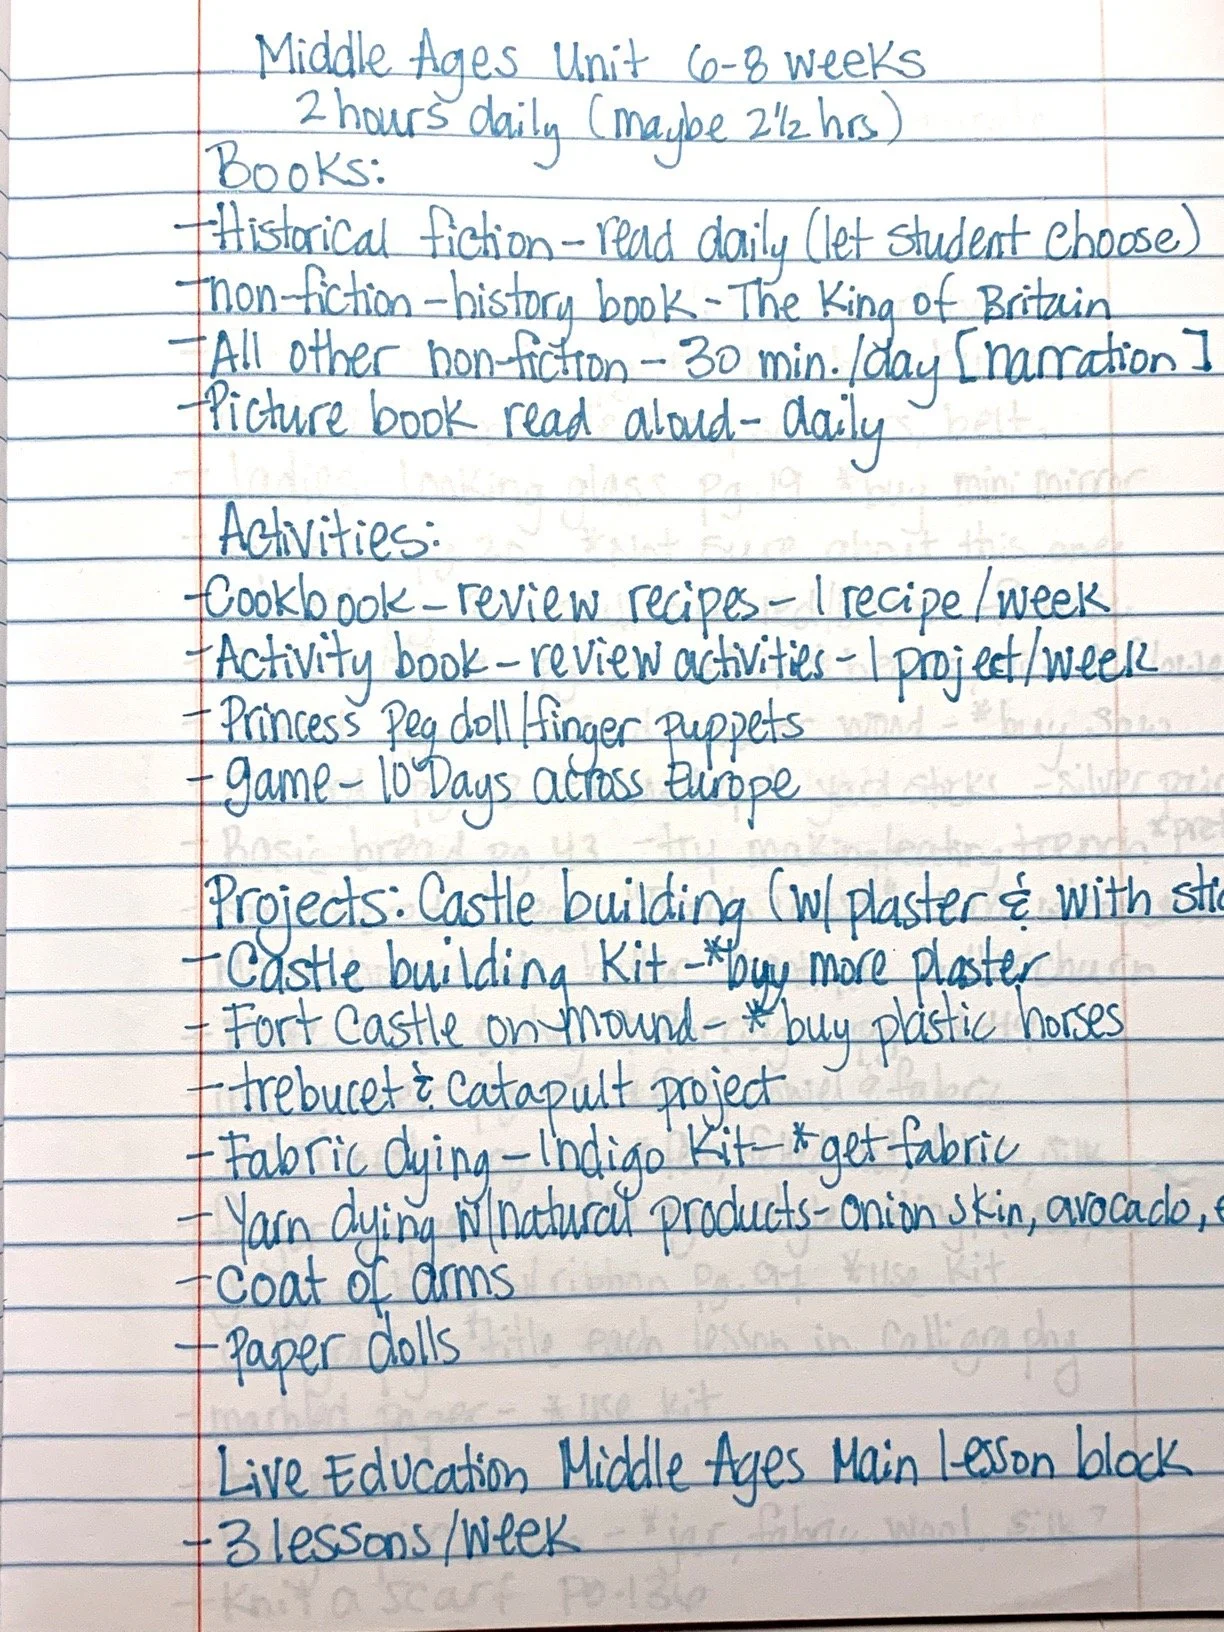 Middle Ages Unit 6-8 weeks
2 hours daily (maybe 2 1/2 hrs)
Books:
-Historical fiction - read daily (let student choose)
-non-fiction - history book - The King of Britain
-All other non-fiction - 30 min./day [narration]
-Picture book read aloud - daily
Activities:
-Cookbook - review recipes - 1 recipe/week
-Activity book - review activities - 1 project/week
-Princess Peg doll/finger puppets
-game - 10 Days across Europe
Projects: Castle building (w/ plaster & with
-Castle building Kit - *buy more plaster
-Fort Castle on mound - *buy plastic horses
-trebucet & Catapult project
-Fabric dying - Indigo Kit - *get fabric
-Yarn dying w/natural products - onion skin, avocado,
-Coat of arms
-Paper dolls
Live Education Middle Ages Main lesson block
-3 lessons/week
ladies looking glass pg. 19 *buy mini mirror
-Basic bread pg. 43
*title each lesson in Calligraphy
*use kit
-Knit a scarf pg. 136